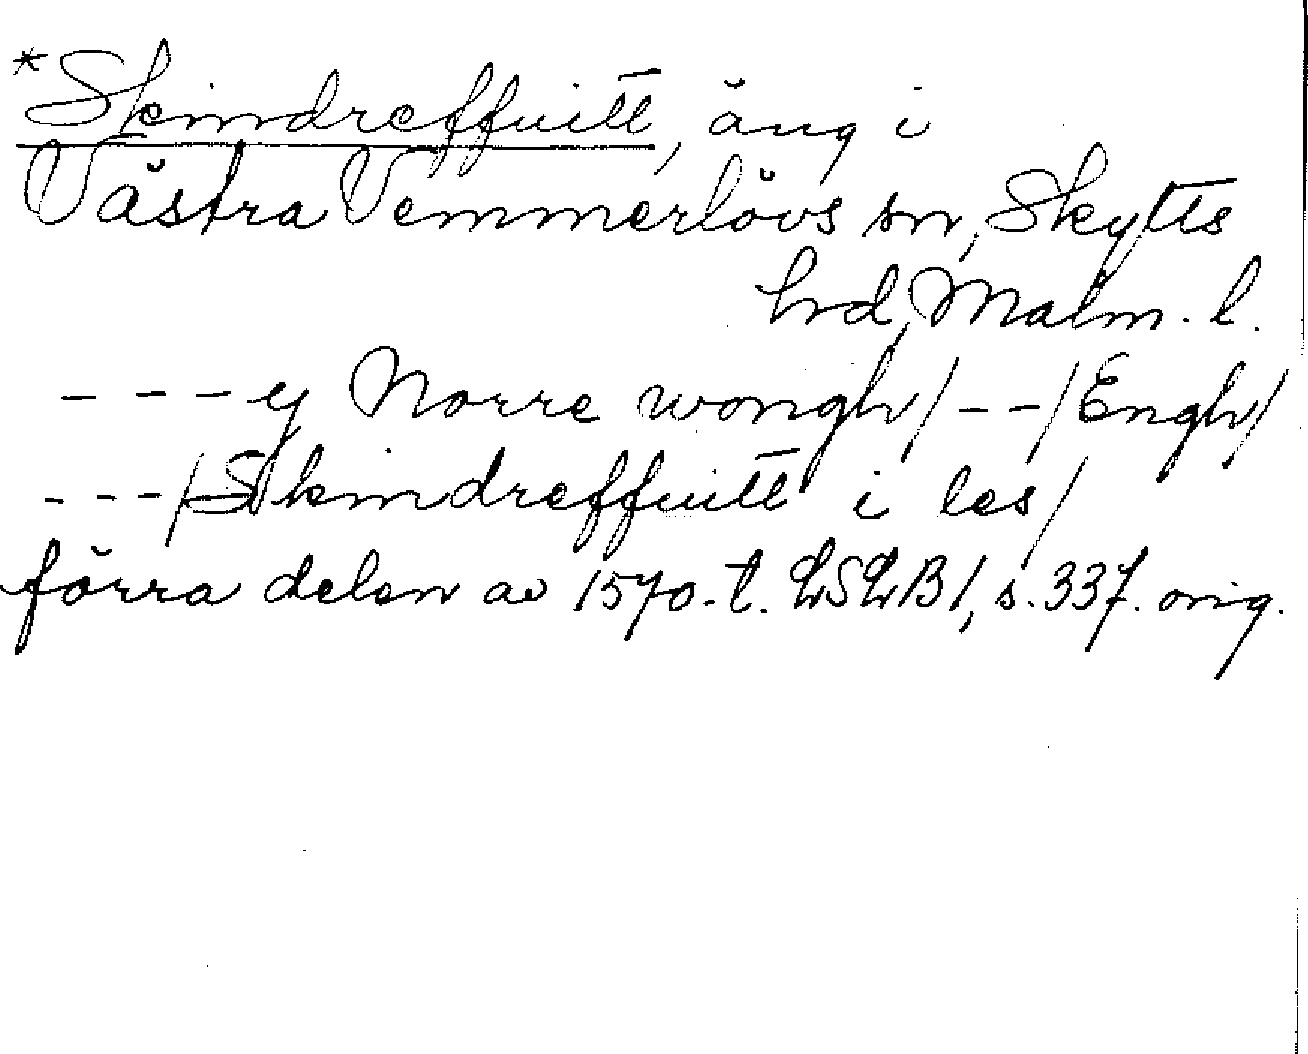 *Skindreffuitt, äng i
Västra Vemmerlövs sn, Skytts
hrd, Malm. l.
- - - y Norre wongh/ - - /Engh/
- - -/Skindreffuitt i les/
förra delen av 1570-t. LSLB1, s. 337. orig.